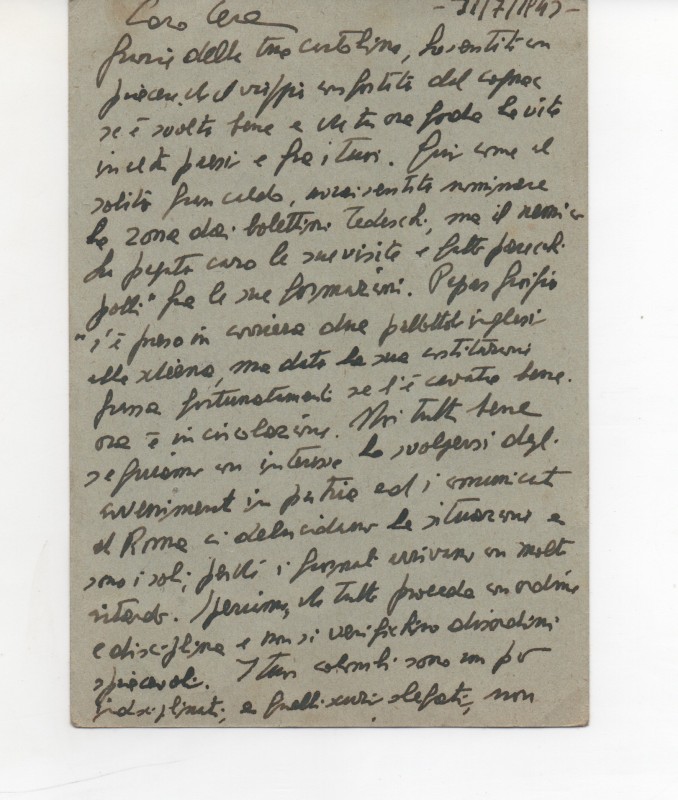 Caro Cera - 31/7/1943 -
Grazie della tua cartolina, ho sentito con
piacere che il viaggio confortato dal cognac
se è svolto bene e che tu ora goda la vita
in città paesi e fra i tuoi. Qui come al
solito gran caldo, avrai sentito nominare
la zona dai bolettini Tedeschi, ma il nemico
ha pagato caro le sue visite e fatto parecchi
"polli" fra le sue formazioni. Papas
"s'è preso in corriera due pallottole inglesi
alla schiena, ma data la sua costituzione
grassa fortunatamente se l'è cavata bene.
ora è in circolazione. Noi tutti bene
seguiamo con interesse lo svolgersi degli
avvenimenti in patria ed i comunicati
di Roma ci delucidano la situazione e
sono i soli, perchè i giornali arrivano con molto
ritardo. Speriamo, che tutto proceda con ordine
e disciplina e non si verifichino disordini
spiacevoli. I tuoi colombi sono un po'
indisciplinati, e quelli slegati, non